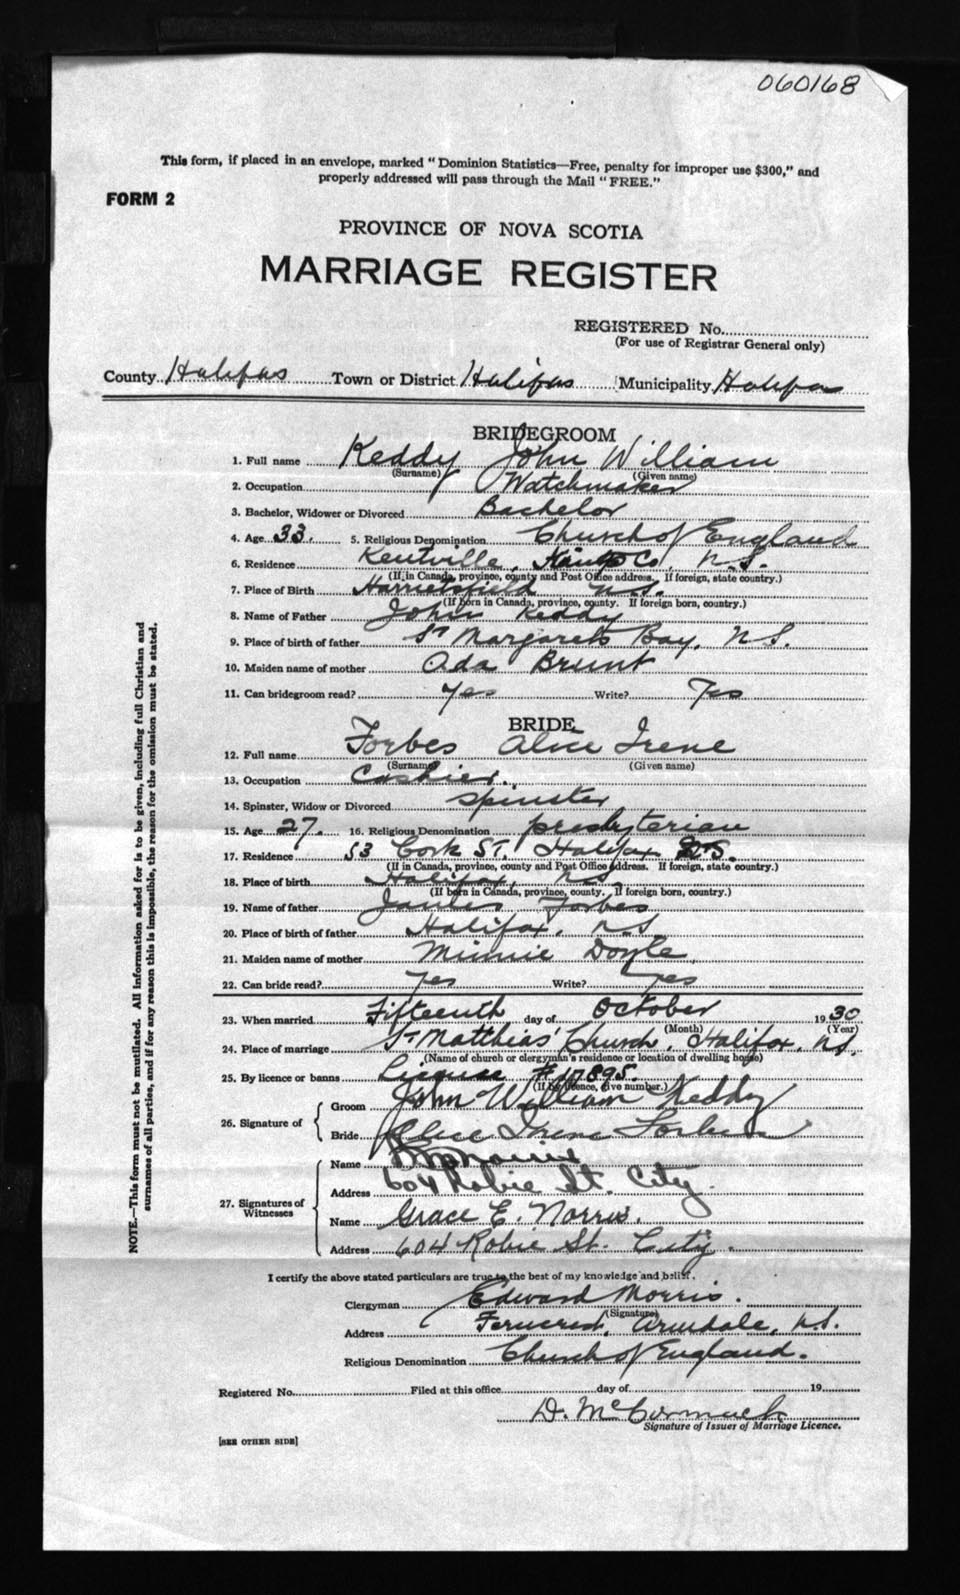 060168
This form, if placed in an envelope, marked "Dominion Statistics—Free, penalty for improper use $300," and
properly addressed will pass through the Mail "FREE."
FORM 2
PROVINCE OF NOVA SCOTIA
MARRIAGE REGISTER
REGISTERED No.
(For use of Registrar General only)
County Halifax Town or District Halifax Municipality Halifax
BRIDEGROOM
1. Full name Keddy John William
(Surname) (Given name)
2. Occupation Watchmaker
3. Bachelor, Widower or Divorced Bachelor
4. Age 33. 5. Religious Denomination Church of England
6. Residence Kentville, Co, N.S.
(If in Canada, province, county and Post Office address. If foreign, state country.)
7. Place of Birth Harrietsfield N.S.
(If born in Canada, province, county. If foreign born, country.)
8. Name of Father John Keddy
9. Place of birth of father St Margarets Bay, N.S.
10. Maiden name of mother Ada Brunt
11. Can bridegroom read? Yes Write? Yes
BRIDE
12. Full name Forbes Alice Irene
(Surname) (Given name)
13. Occupation Cashier.
14. Spinster, Widow or Divorced Spinster
15. Age 27. 16. Religious Denomination presbyterian
17. Residence 53 Cork St. Halifax N.S.
(If in Canada, province, county and Post Office address. If foreign, state country.)
18. Place of birth Halifax, N.S.
(If born in Canada, province, county. If foreign born, country.)
19. Name of father James Forbes
20. Place of birth of father Halifax, N.S.
21. Maiden name of mother Minnie Doyle
22. Can bride read? Yes Write? Yes
23. When married Fifteenth day of October 1930
(Month) (Year)
24. Place of marriage St Matthias' Church, Halifax, N.S.
(Name of church or clergyman's residence or location of dwelling house)
25. By licence or banns License # 17895.
(If by licence, give number.)
26. Signature of
Groom John William Keddy
Bride Alice Irene Forbes
27. Signatures of Witnesses
Name
Address 604 Robie St. City.
Name Grace E. Norris.
Address 604 Robie St. City.
I certify the above stated particulars are true to the best of my knowledge and belief.
Clergyman Edward Morris.
(Signature)
Address Ferncrest, Armdale, N.S.
Religious Denomination Church of England.
Registered No. Filed at this office day of 19
D. McCormack
Signature of Issuer of Marriage Licence.
[SEE OTHER SIDE]
NOTE.—This form must not be mutilated. All information asked for is to be given, including full Christian and
surnames of all parties, and if for any reason this is impossible, the reason for the omission must be stated.